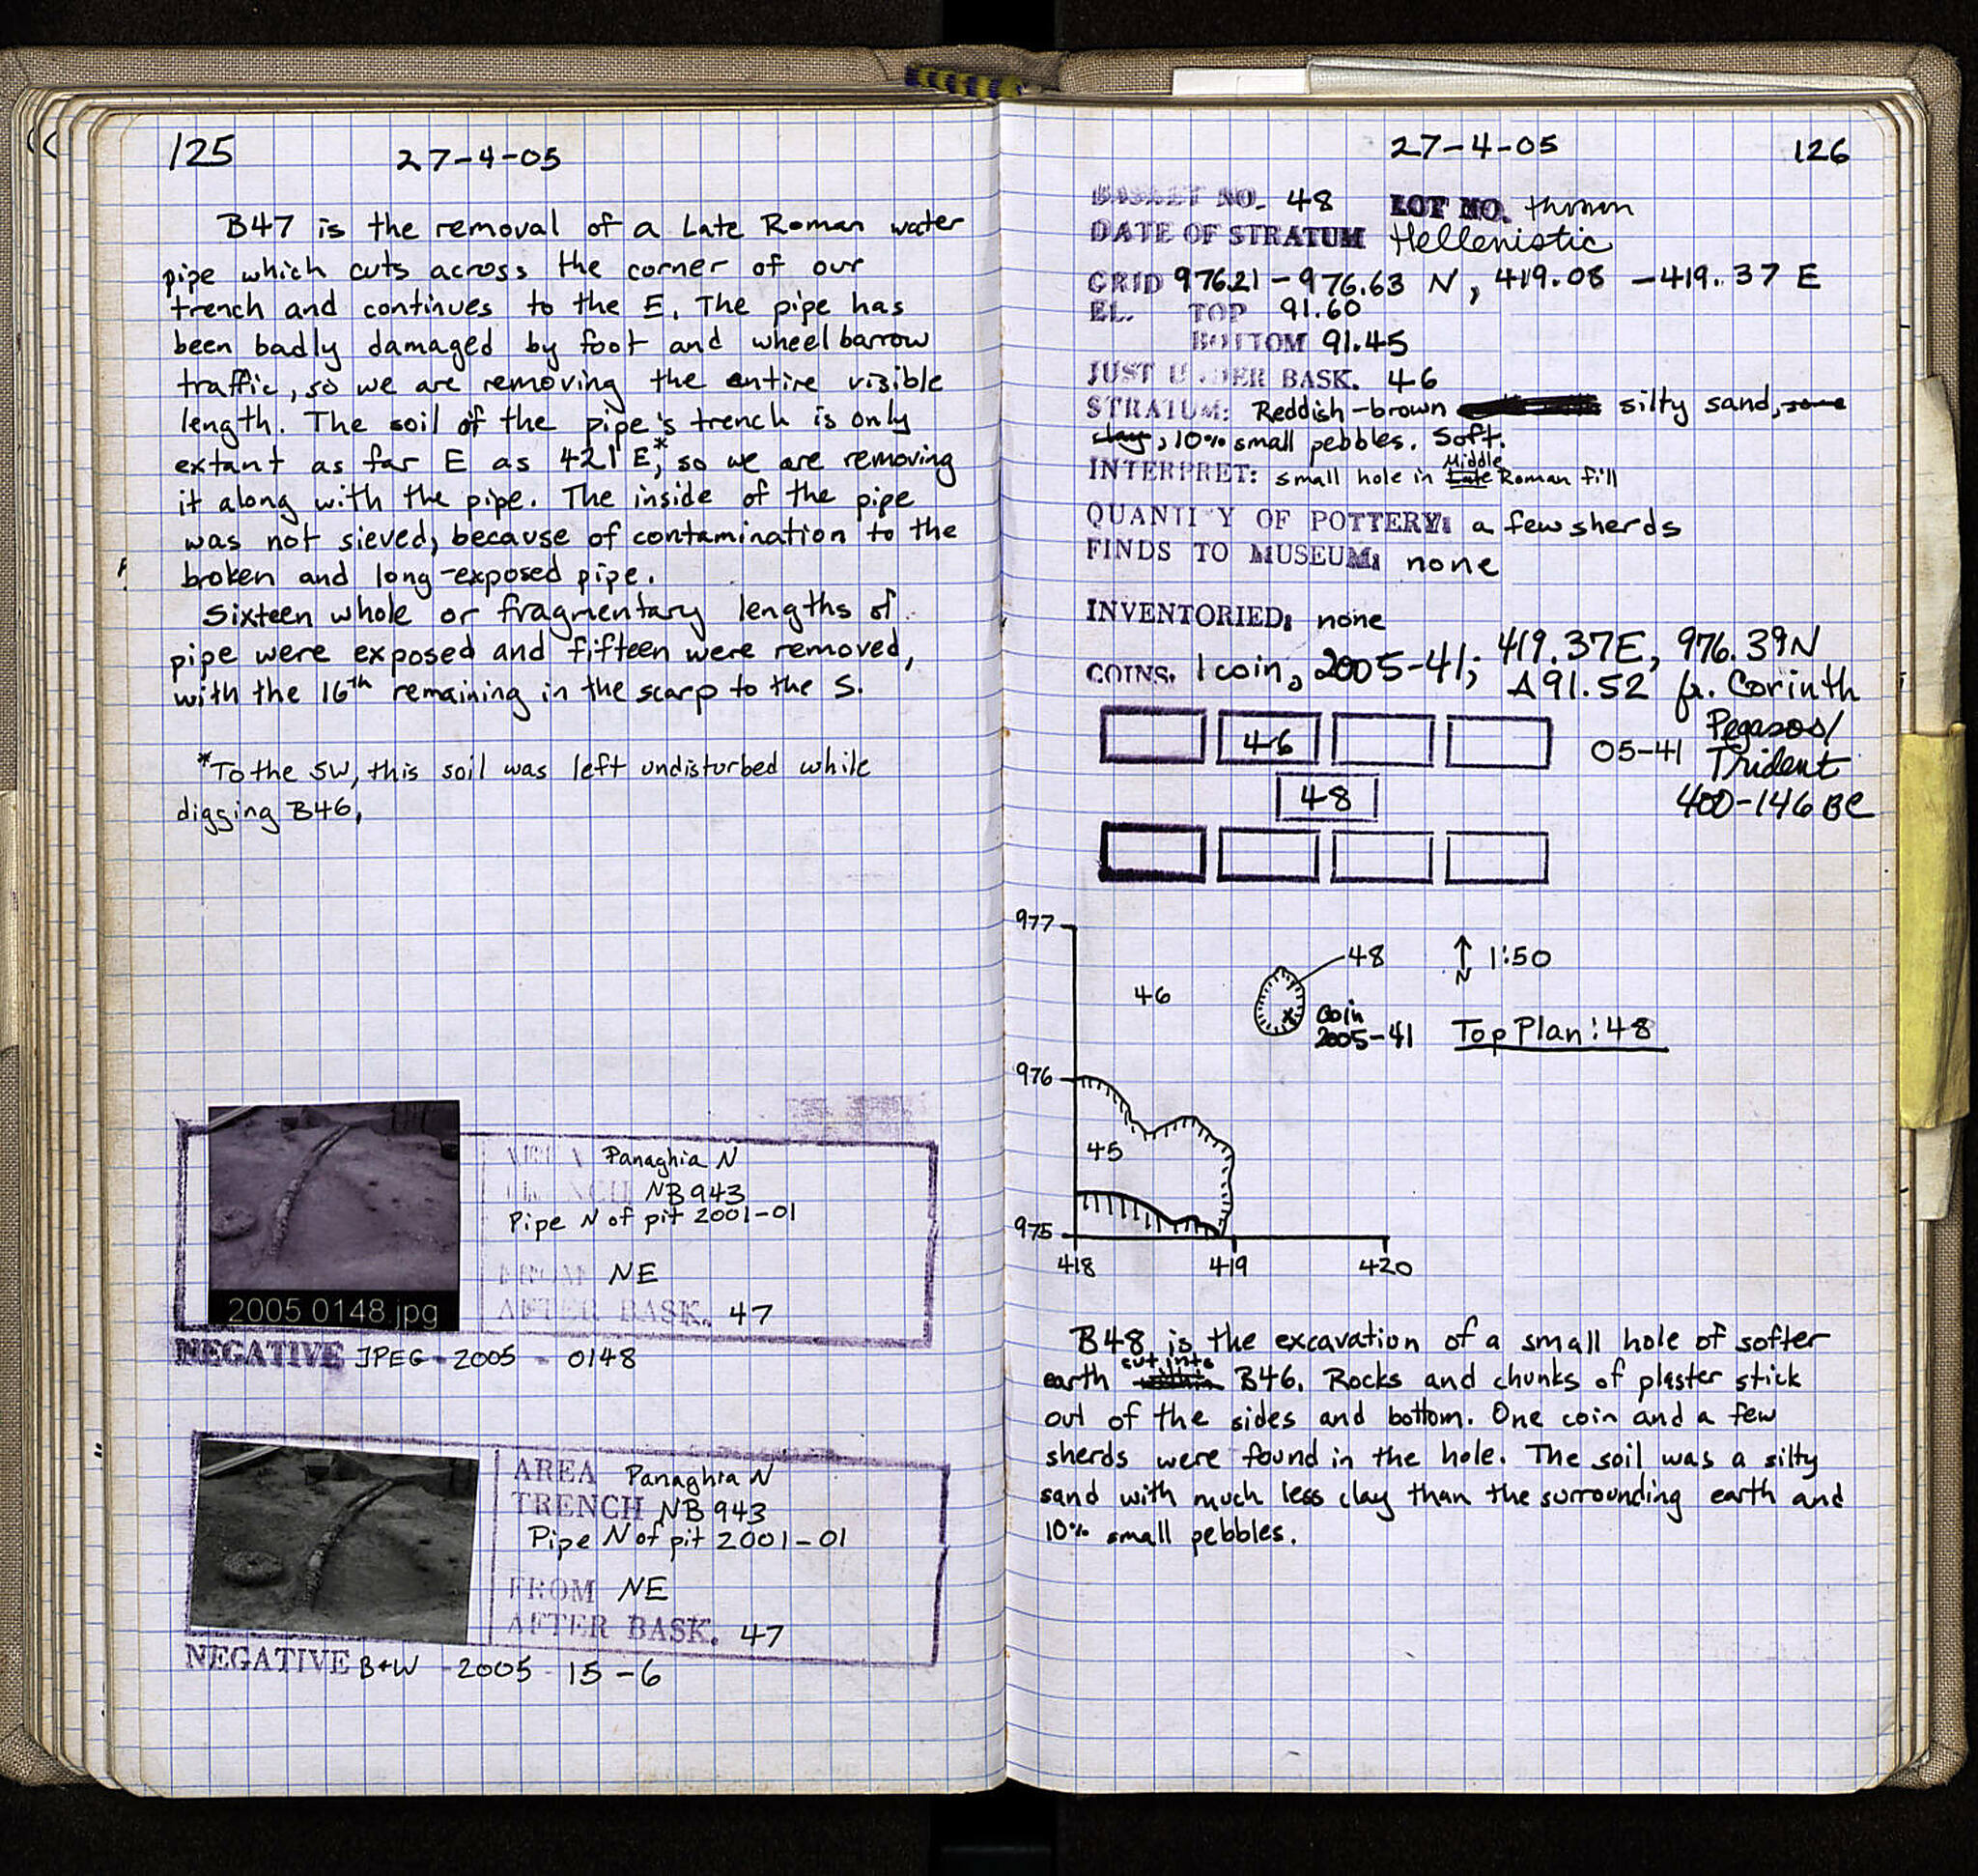 125
27-4-05
B47 is the removal of a Late Roman water
pipe which cuts across the corner of our
trench and continues to the E. The pipe has
been badly damaged by foot and wheelbarrow
traffic, so we are removing the entire visible
length. The soil of the pipe's trench is only
extant as far E as 421 E,* so we are removing
it along with the pipe. The inside of the pipe
was not sieved, because of contamination to the
broken and long-exposed pipe.
Sixteen whole or fragmentary lengths of
pipe were exposed and fifteen were removed,
with the 16th remaining in the scarp to the S.
*To the SW, this soil was left undisturbed while
digging B46.
2005 0148.jpg
AREA Panaghia N
TRENCH NB 943
Pipe N of pit 2001-01
FROM NE
AFTER BASK. 47
NEGATIVE JPEG - 2005 - 0148
AREA Panaghia N
TRENCH NB 943
Pipe N of pit 2001-01
FROM NE
AFTER BASK. 47
NEGATIVE B+W - 2005 - 15 - 6
27-4-05
126
BASKET NO. 48 LOT NO. thrown
DATE OF STRATUM Hellenistic
GRID 976.21-976.63 N, 419.08 -419.37 E
EL. TOP 91.60
BOTTOM 91.45
JUST UNDER BASK. 46
STRATUM: Reddish-brown silty sand, some
clay, 10% small pebbles. Soft.
Middle
INTERPRET: small hole in Late Roman fill
QUANTITY OF POTTERY: a few sherds
FINDS TO MUSEUM: none
INVENTORIED: none
COINS. 1 coin, 2005-41; 419.37E, 976.39N
A 91.52 fr. Corinth
05-41 Pegasos/
Trident
400-146 BC
46
48
977
48
N
1:50
46
Coin
2005-41
Top Plan: 48
976
45
975
418
419
420
B48 is the excavation of a small hole of softer
earth cut into B46. Rocks and chunks of plaster stick
out of the sides and bottom. One coin and a few
sherds were found in the hole. The soil was a silty
sand with much less clay than the surrounding earth and
10% small pebbles.